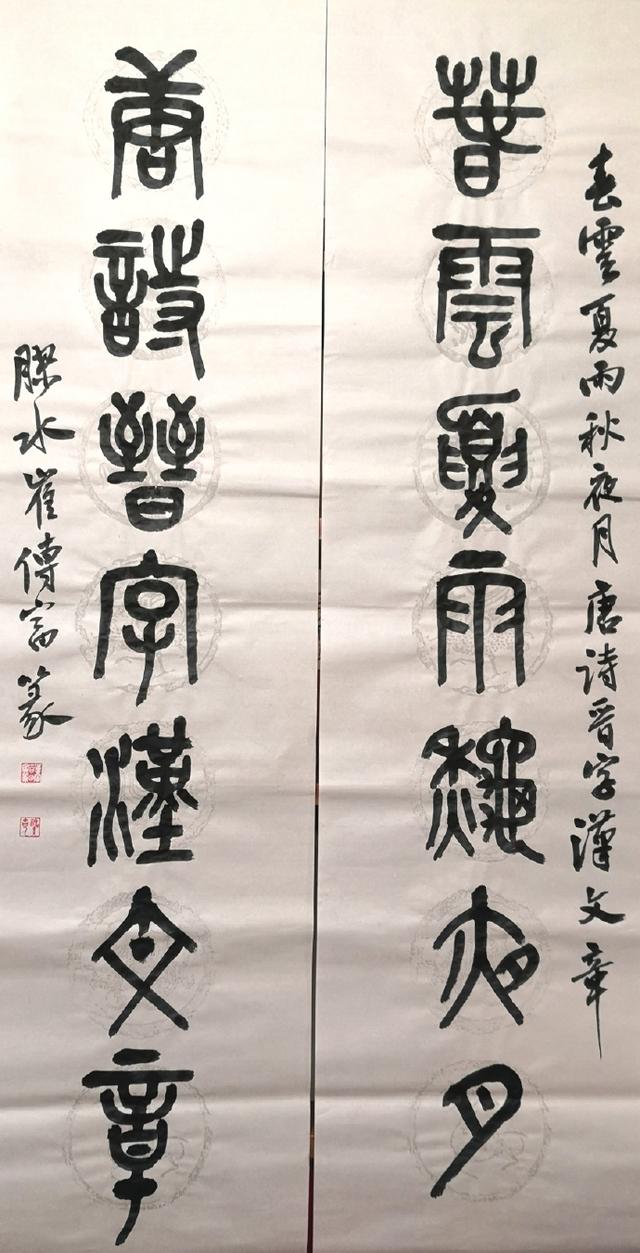 春雲夏雨秋夜月唐诗晋字漢文章
春雲夏雨龝夜月
唐詩晉字漢文章
膠水崔傳富篆